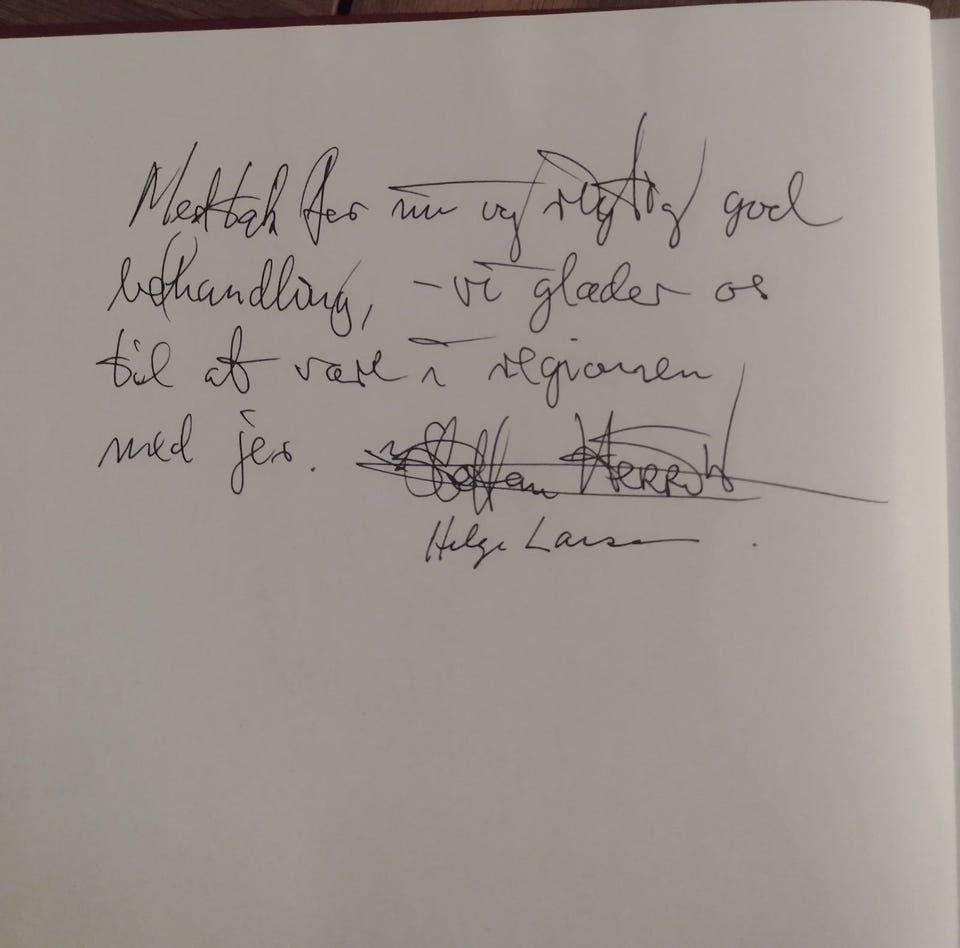 Mertak for nu og rigtig god
behandling, - vi glæder os
til at være i regionen
med jer. Steffen Herrik
Helge Larsen